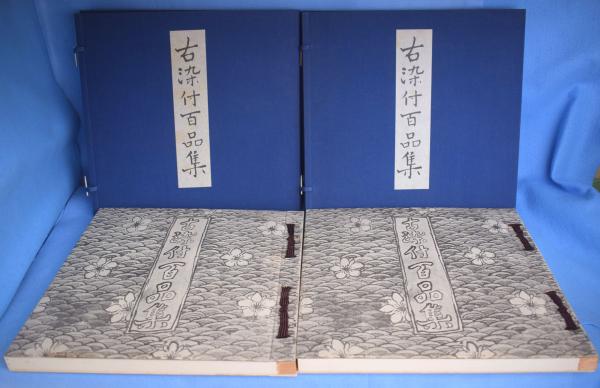 古染付百品集
古染付百品集
古染付百品集
古染付百品集